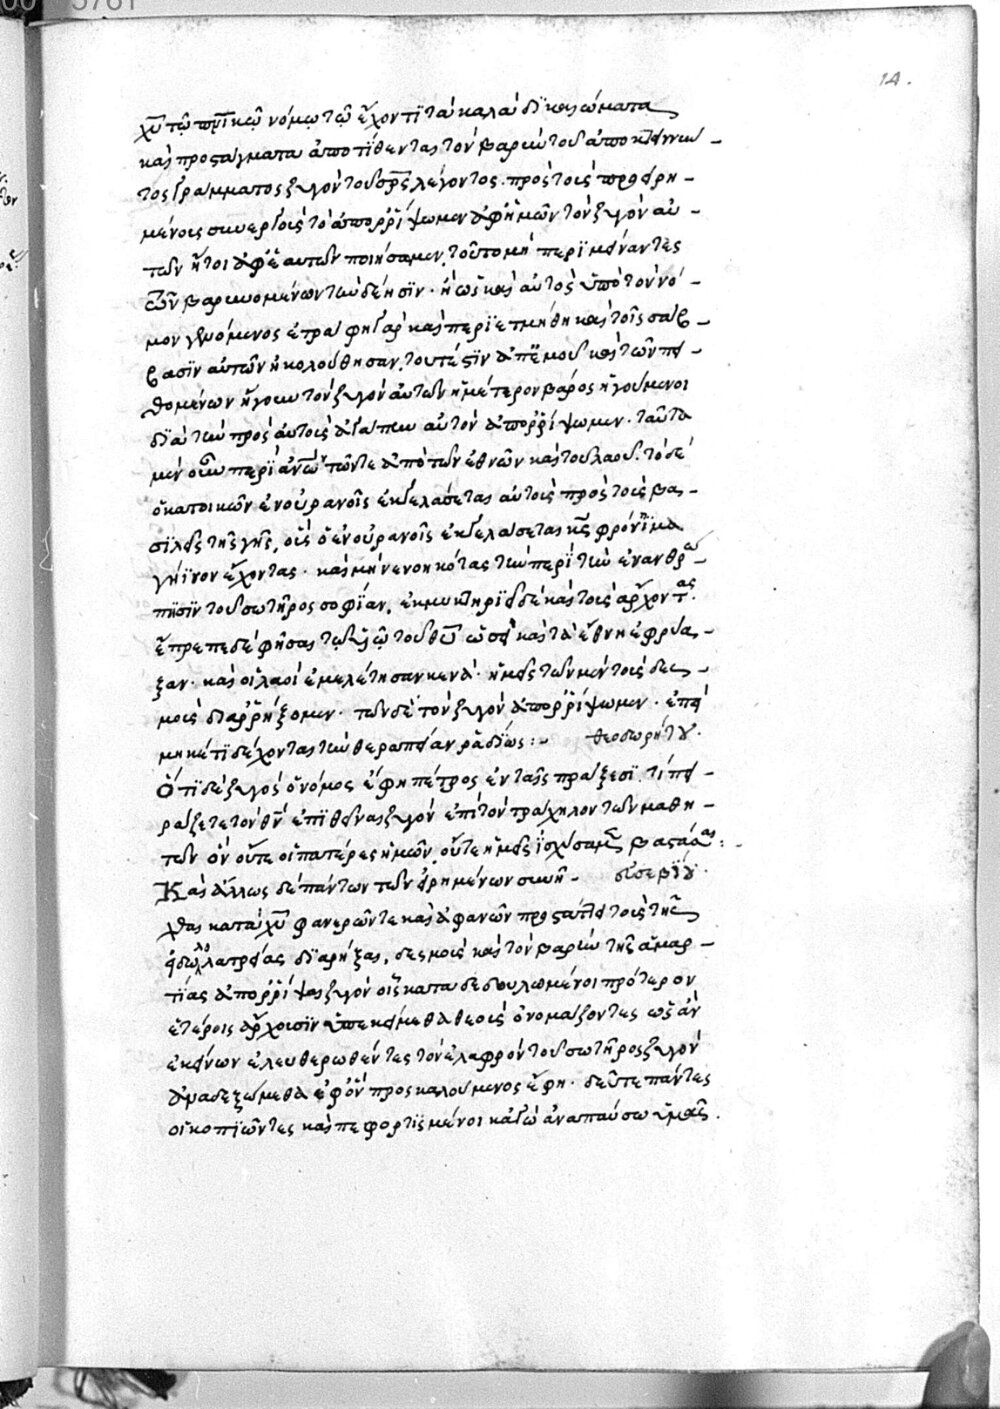 14.
χῡ τῶ πν̄ικῶ νόμω τῶ ἔχοντι τὰ καλὰ δικαιώματα
καὶ προστάγματα ἀποτίθενται τὸν βαρὺν τοῦ ἀποκτέννον-
τος γράμματος ζυγὸν τοῦ σρ̄ς λέγοντος πρὸς τοὺς προειρη-
μένοις συνεργοῖς τὸ ἀπορρίψωμεν ἀφ' ἡμῶν τὸν ζυγὸν αὐ-
τῶν ἤτοι ἀφ' ἑαυτῶν ποιήσωμεν, τοῦτο μὴ περιμείναντες
τῶν βαρυνομένων τὴν δέησιν. ἢ ὡς καὶ αὐτὸς ὑπὸ τὸν νό-
μον γενόμενος ἐτράφη γὰρ καὶ περιετμήθη καὶ τοῖς σάβ-
βασιν αὐτῶν ἠκολούθησαν, τουτέστιν ἀπ' ἐμοῦ καὶ τῶν πει-
θομένων ἤγουν τὸν ζυγὸν αὐτῶν ἡμέτερον βάρος ἡγούμενοι
διὰ τὴν πρὸς αὐτοὺς ἀγάπην αὐτὸν ἀπορρίψωμεν. ταῦτα
μὲν οὖν περὶ ἀν̄ων πόντε ἀπὸ τῶν ἐθνῶν καὶ τοῦ λαοῦ. τὸ δὲ
ὁ κατοικῶν ἐν οὐρανοῖς ἐκγελάσεται αὐτοὺς πρὸς τοὺς βα-
σιλεῖς τῆς γῆς, οὓς ὁ ἐν οὐρανοῖς ἐκγελάσεται κς̄ φρόνημα
γήϊνον ἔχοντας. καὶ μὴ νενοηκότας τὴν περὶ τὴν ἐνανθρώ
πησιν τοῦ σωτῆρος σοφίαν, ἐκμυκτηριεῖ δὲ καὶ τοὺς ἄρχοντας.
ἔπρεπε δὲ φῆσαι τῶ υἱῶ τοῦ θῡ ὡσεὶ καὶ τὰ ἔθνη ἐφρύα-
ξαν. καὶ οἱ λαοὶ ἐμελέτησαν κενά. ἡμεῖς τῶν μὲν τοὺς δεσ-
μοὺς διαρρήξομεν. τῶν δὲ τὸν ζυγὸν ἀπορρίψωμεν. ἐπεὶ
μηκέτι δέχονται τὴν θεραπείαν ῥαδίως :- θεοδωρήτου.
Ὅτι δὲ ζυγὸς ὁ νόμος ἔφη πέτρος ἐν ταῖς πράξεσι, τί πει-
ράζετε τὸν θν̄ ἐπιθεῖναι ζυγὸν ἐπὶ τὸν τράχηλον τῶν μαθη-
τῶν ὃν οὔτε οἱ πατέρες ἡμῶν, οὔτε ἡμεῖς ἰσχύσαμεν βαστάσαι :-
Καὶ ἄλλως δὲ πάντων τῶν εἰρημένων συνῆ- εὐσεβίου.
χθαι κατὰ χῡ φανερῶν τε καὶ ἀφανῶν προστάττει τοὺς τῆς
εἰδωλολατρείας διαρήξας, δεσμοὺς καὶ τὸν βαρὺν τῆς ἁμαρ-
τίας ἀπορρίψαι ζυγὸν οἷς καταδεδουλωμένοι πρότερον
ἑτέροις ἄρχουσιν ὑπεκείμεθα θεοὺς ὀνομάζοντες ὡς ἂν
ἐκείνων ἐλευθερωθέντες τὸν ἐλαφρὸν τοῦ σωτῆρος ζυγὸν
ἀναδεξώμεθα ἐφ' ὃν προσκαλούμενος ἔφη. δεῦτε πάντες
οἱ κοπιῶντες καὶ πεφορτισμένοι κἀγὼ ἀναπαύσω ὑμᾶς.